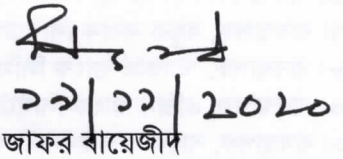 ১১|১১|২০২০
জাফর বায়েজীদ